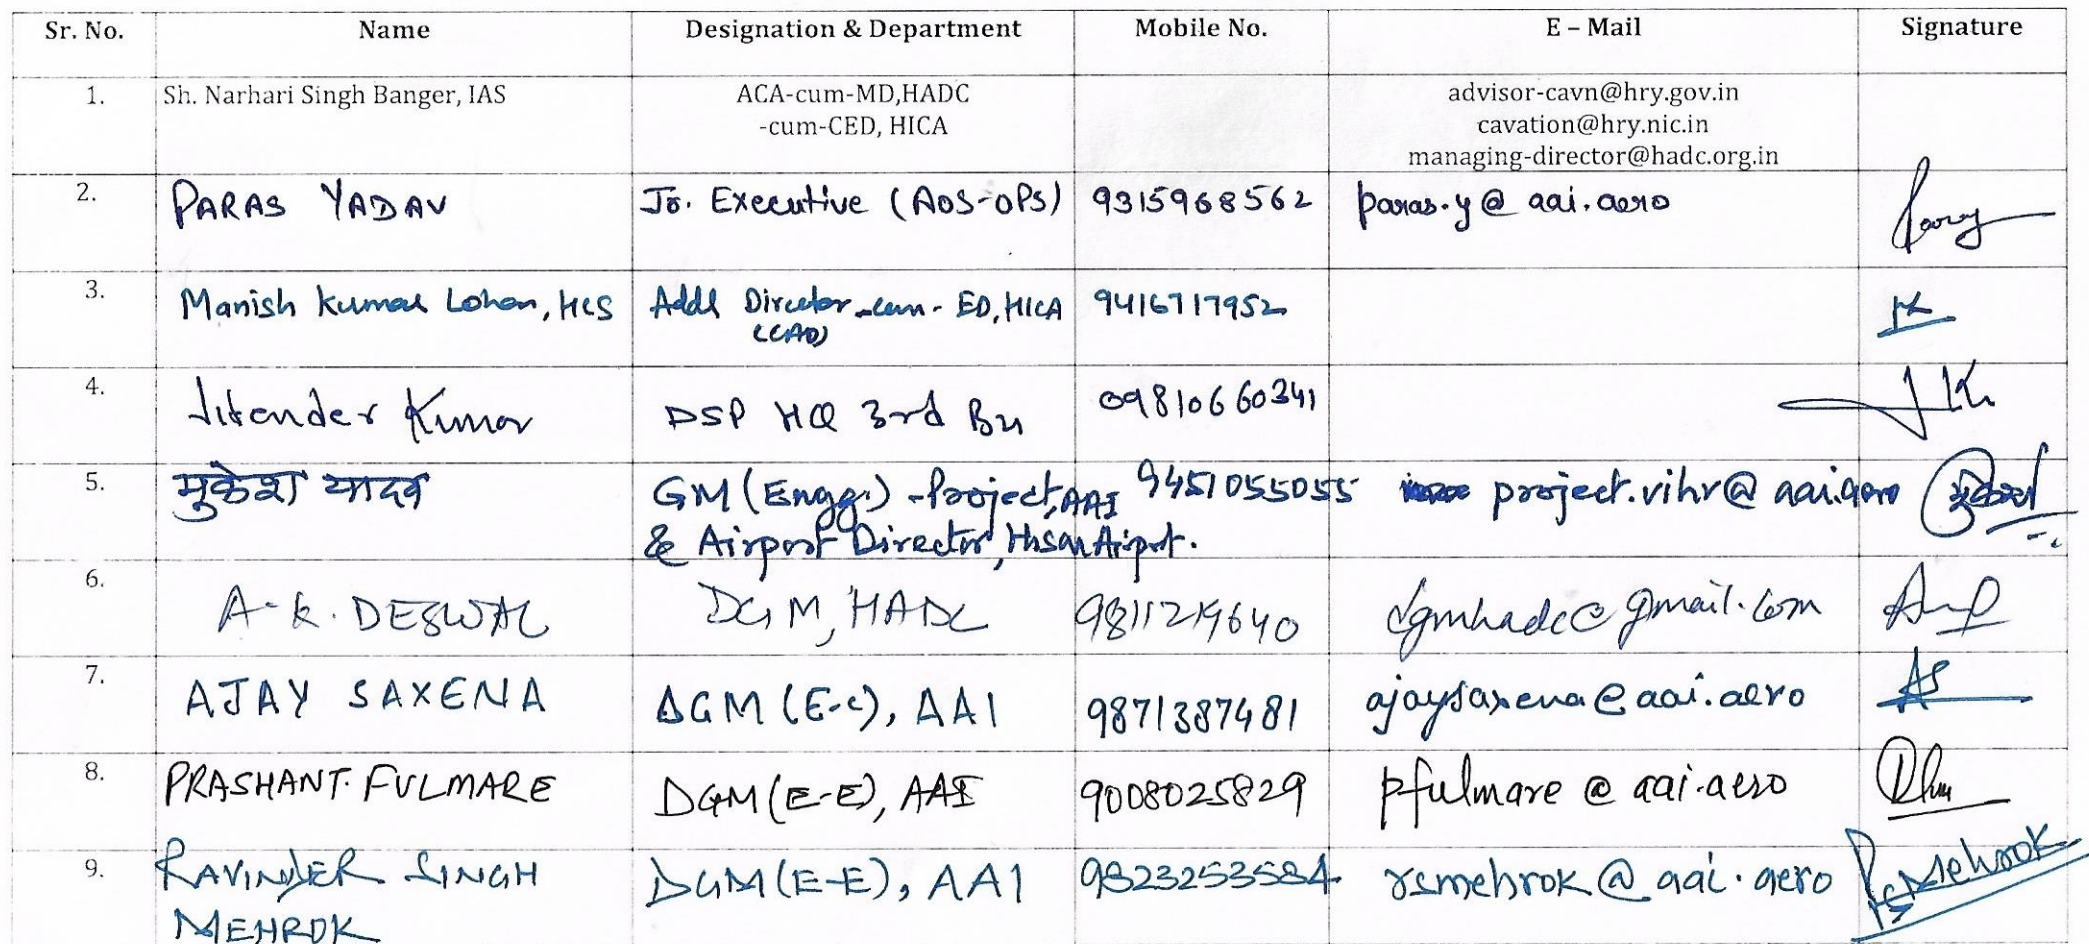 Sr. No. Name Designation & Department Mobile No. E – Mail Signature
1. Sh. Narhari Singh Banger, IAS ACA-cum-MD,HADC advisor-cavn@hry.gov.in
-cum-CED, HICA cavation@hry.nic.in
managing-director@hadc.org.in
2. PARAS YADAV Jr. Executive (AOS-OPS) 9315968562 paras.y@aai.aero
3. Manish Kumar Lohan, HCS Addl Director-cum-ED, HICA 9416717952
(CAD)
4. Jitender Kumar DSP HQ 3rd Bn 09810660341 JK
5. मुकेश यादव GM (Engg.) -Project, AAI 9451055055 project.vihr@aai.aero
& Airport Director, Hisar Airport.
6. A.K. DESWAL DGM, HADC 9811219640 dgmhadc@gmail.com
7. AJAY SAXENA DGM (E-C), AAI 9871387481 ajaysaxena@aai.aero AS
8. PRASHANT. FULMARE DGM (E-E), AAI 9008025829 pfulmare@aai.aero
9. RAVINDER SINGH DGM (E-E), AAI 9823253584 rsmehrok@aai.aero RSMehrok
MEHROK